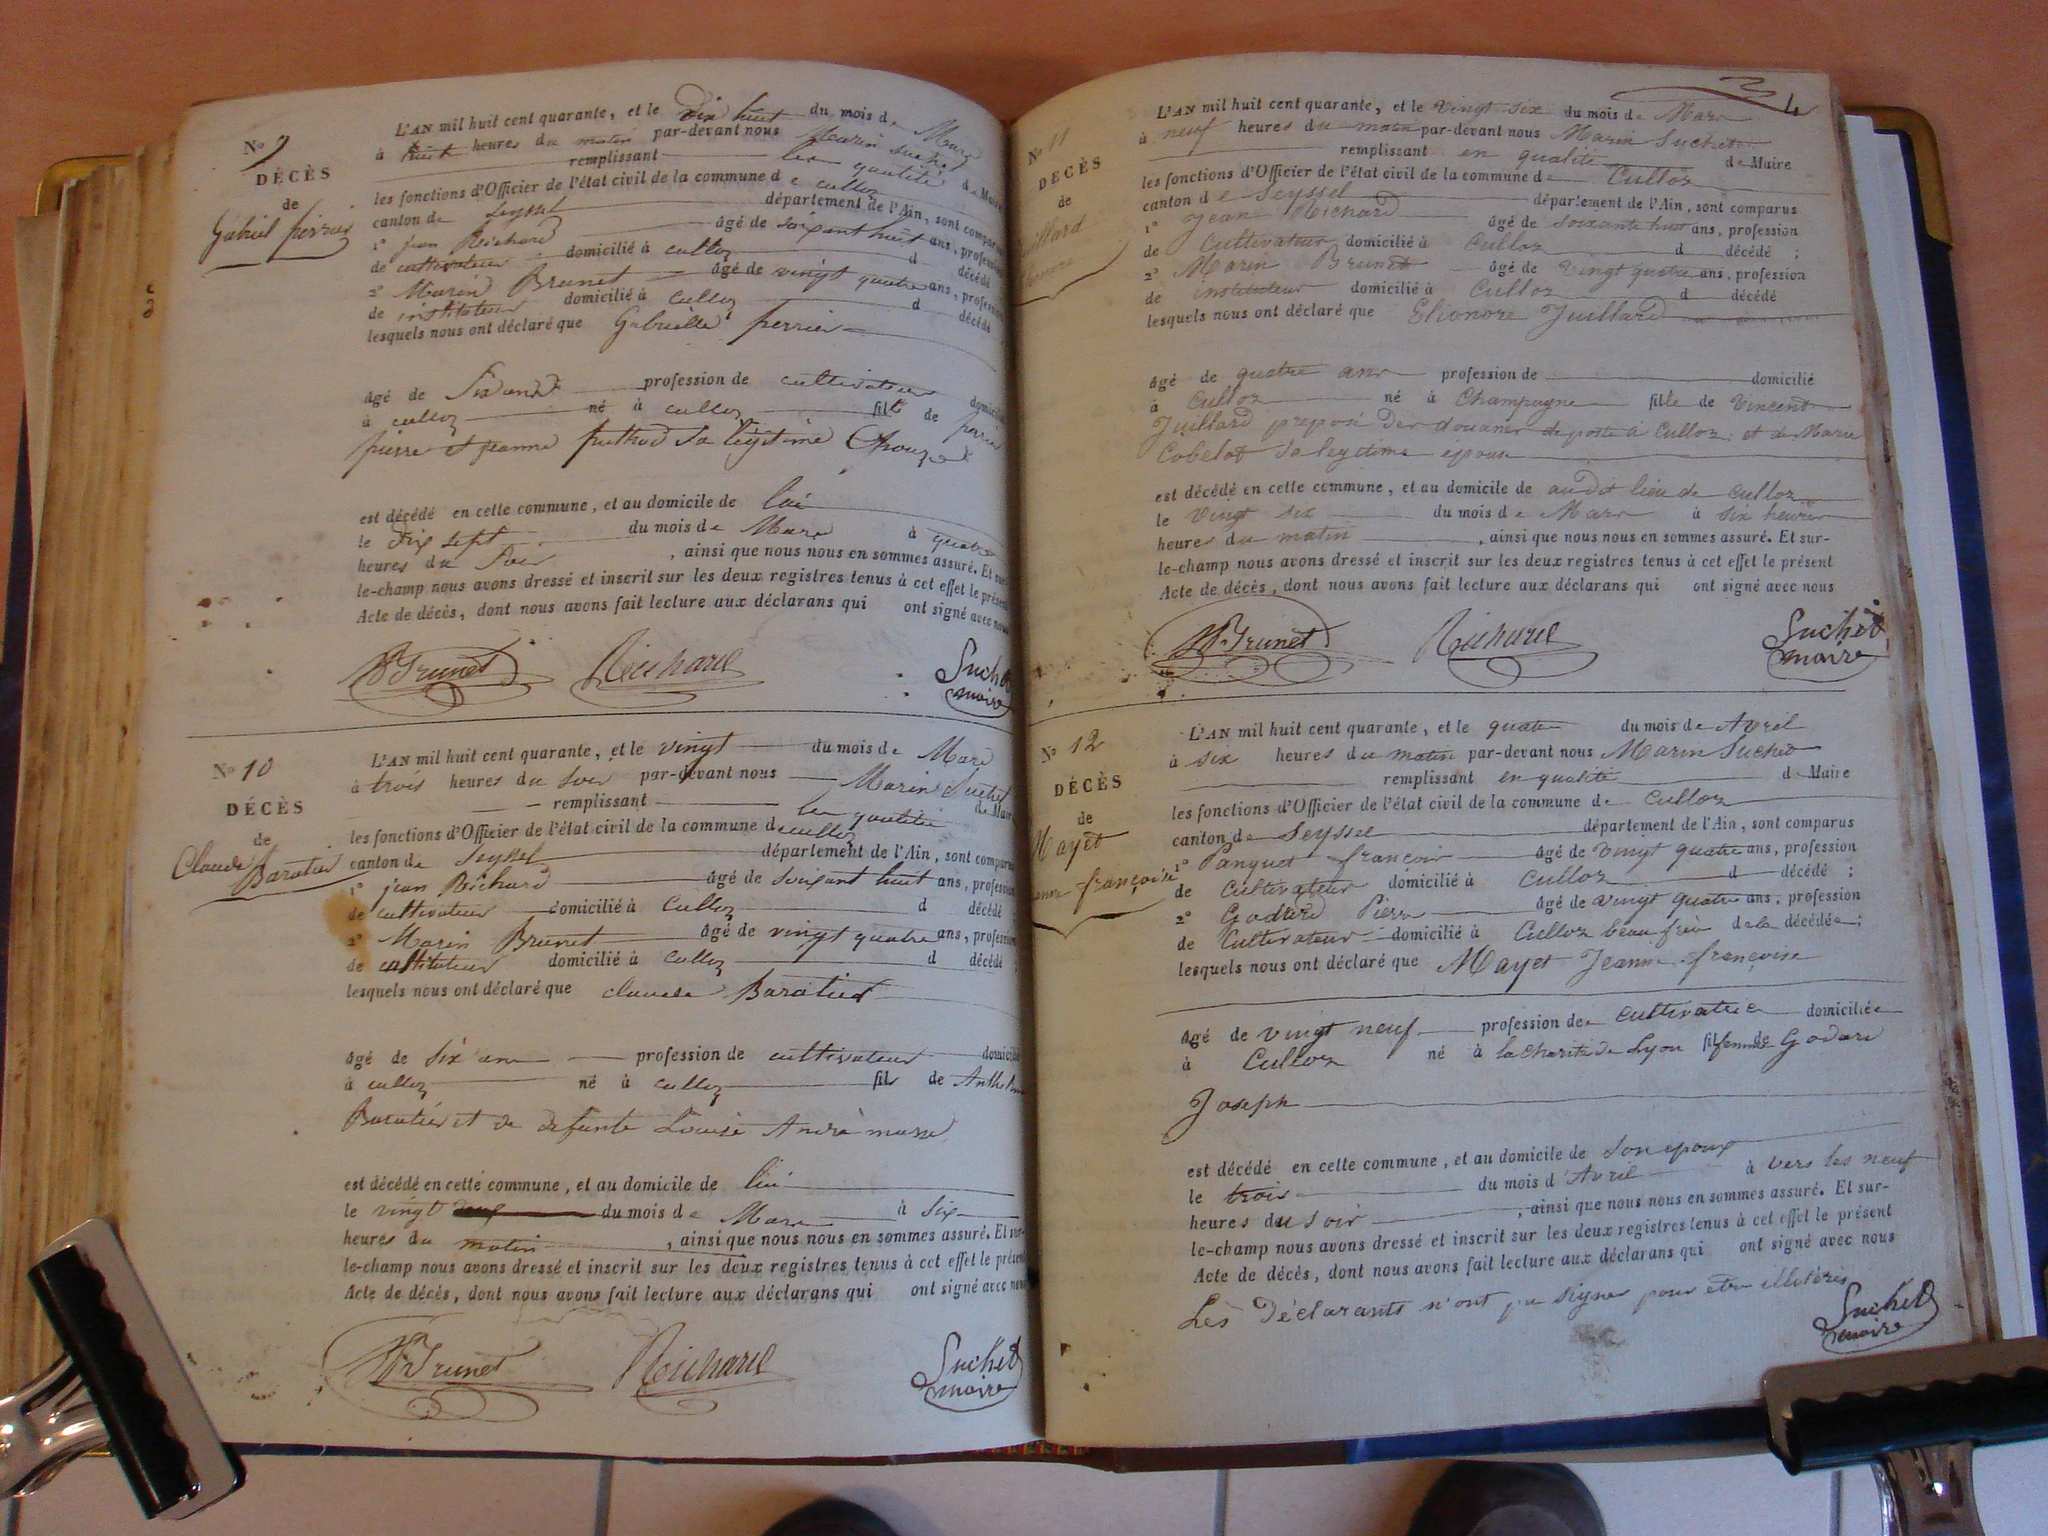 No 9
DÉCÈS
de
Gabriel perrier
L'AN mil huit cent quarante, et le Dix huit du mois de Mars
à huit heures du matin par-devant nous Marin Suchet
remplissant en qualité de Maire
les fonctions d'Officier de l'état civil de la commune de culloz
canton de Seyssel département de l'Ain, sont comparus
1° jean Richard âgé de soixant huit ans, profession
de cultivateur domicilié à culloz d décédé
2° Marin Brunet âgé de vingt quatre ans, profession
de instituteur domicilié à culloz d décédé
lesquels nous ont déclaré que Gabrielle perrier
âgé de Six ans profession de cultivateur domicilié
à culloz né à culloz fils de perrier
pierre et jeanne sa légitime Epouze
est décédé en cette commune, et au domicile de lui
le dix sept du mois de Mars à quatre
heures du Soir, ainsi que nous nous en sommes assuré. Et sur-
le-champ nous avons dressé et inscrit sur les deux registres tenus à cet effet le présent
Acte de décès, dont nous avons fait lecture aux déclarans qui ont signé avec nous
Mn Brunet Richard Suchet
maire
No 10
DÉCÈS
de
Claude
Baratier
L'AN mil huit cent quarante, et le vingt du mois de Mars
à trois heures du soir par-devant nous Marin Suchet
remplissant en qualité de Maire
les fonctions d'Officier de l'état civil de la commune de culloz
canton de Seyssel département de l'Ain, sont comparus
1° jean Richard âgé de soixant huit ans, profession
de cultivateur domicilié à culloz d décédé ;
2° Marin Brunet âgé de vingt quatre ans, profession
de instituteur domicilié à culloz d décédé ;
lesquels nous ont déclaré que claude Baratier
âgé de six ans profession de cultivateur domicilié
à culloz né à culloz fils de Anthelme
Baratier et de defunte Louise André
est décédé en cette commune, et au domicile de lui
le vingt du mois de Mars à six
heures du matin, ainsi que nous nous en sommes assuré. Et sur-
le-champ nous avons dressé et inscrit sur les deux registres tenus à cet effet le présent
Acte de décès, dont nous avons fait lecture aux déclarans qui ont signé avec nous
Mn Brunet Richard Suchet
maire
4
No 11
DÉCÈS
de
Juillard
L'AN mil huit cent quarante, et le vingt six du mois de Mars
à neuf heures du matin par-devant nous Marin Suchet
remplissant en qualité de Maire
les fonctions d'Officier de l'état civil de la commune de Culloz
canton de Seyssel département de l'Ain, sont comparus
1° Jean Richard âgé de soixante huit ans, profession
de Cultivateur domicilié à Culloz d décédé ;
2° Marin Brunet âgé de vingt quatre ans, profession
de instituteur domicilié à Culloz d décédé
lesquels nous ont déclaré que Elionore Juillard
âgé de quatre ans profession de domicilié
à Culloz né à Champagne fille de Vincent
Juillard preposé des douanes de poste à Culloz et de Marie
Cobelot sa legitime epouse
est décédé en cette commune, et au domicile de audit lieu de culloz
le vingt six du mois de Mars à six heures
heures du matin, ainsi que nous nous en sommes assuré. Et sur-
le-champ nous avons dressé et inscrit sur les deux registres tenus à cet effet le présent
Acte de décès, dont nous avons fait lecture aux déclarans qui ont signé avec nous
Mn Brunet Richard Suchet
maire
No 12
DÉCÈS
de
Mayet
françoise
L'AN mil huit cent quarante, et le quatre du mois de Avril
à six heures du matin par-devant nous Marin Suchet
remplissant en qualité de Maire
les fonctions d'Officier de l'état civil de la commune de culloz
canton de Seyssel département de l'Ain, sont comparus
1° Panquet françois âgé de vingt quatre ans, profession
de Cultivateur domicilié à Culloz d décédé ;
2° Godard Pierre âgé de vingt quatre ans, profession
de Cultivateur domicilié à Culloz beau frère de la décédée ;
lesquels nous ont déclaré que Mayet Jeanne françoise
âgé de vingt neuf profession de cultivatrice domiciliée
à Culloz né à la charité de Lyon femme de Godard
Joseph
est décédé en cette commune, et au domicile de son epoux
le trois du mois d'Avril à vers les neuf
heures du soir, ainsi que nous nous en sommes assuré. Et sur-
le-champ nous avons dressé et inscrit sur les deux registres tenus à cet effet le présent
Acte de décès, dont nous avons fait lecture aux déclarans qui ont signé avec nous
Les Déclarants n'ont pu signer pour etre illiterés
Suchet
maire